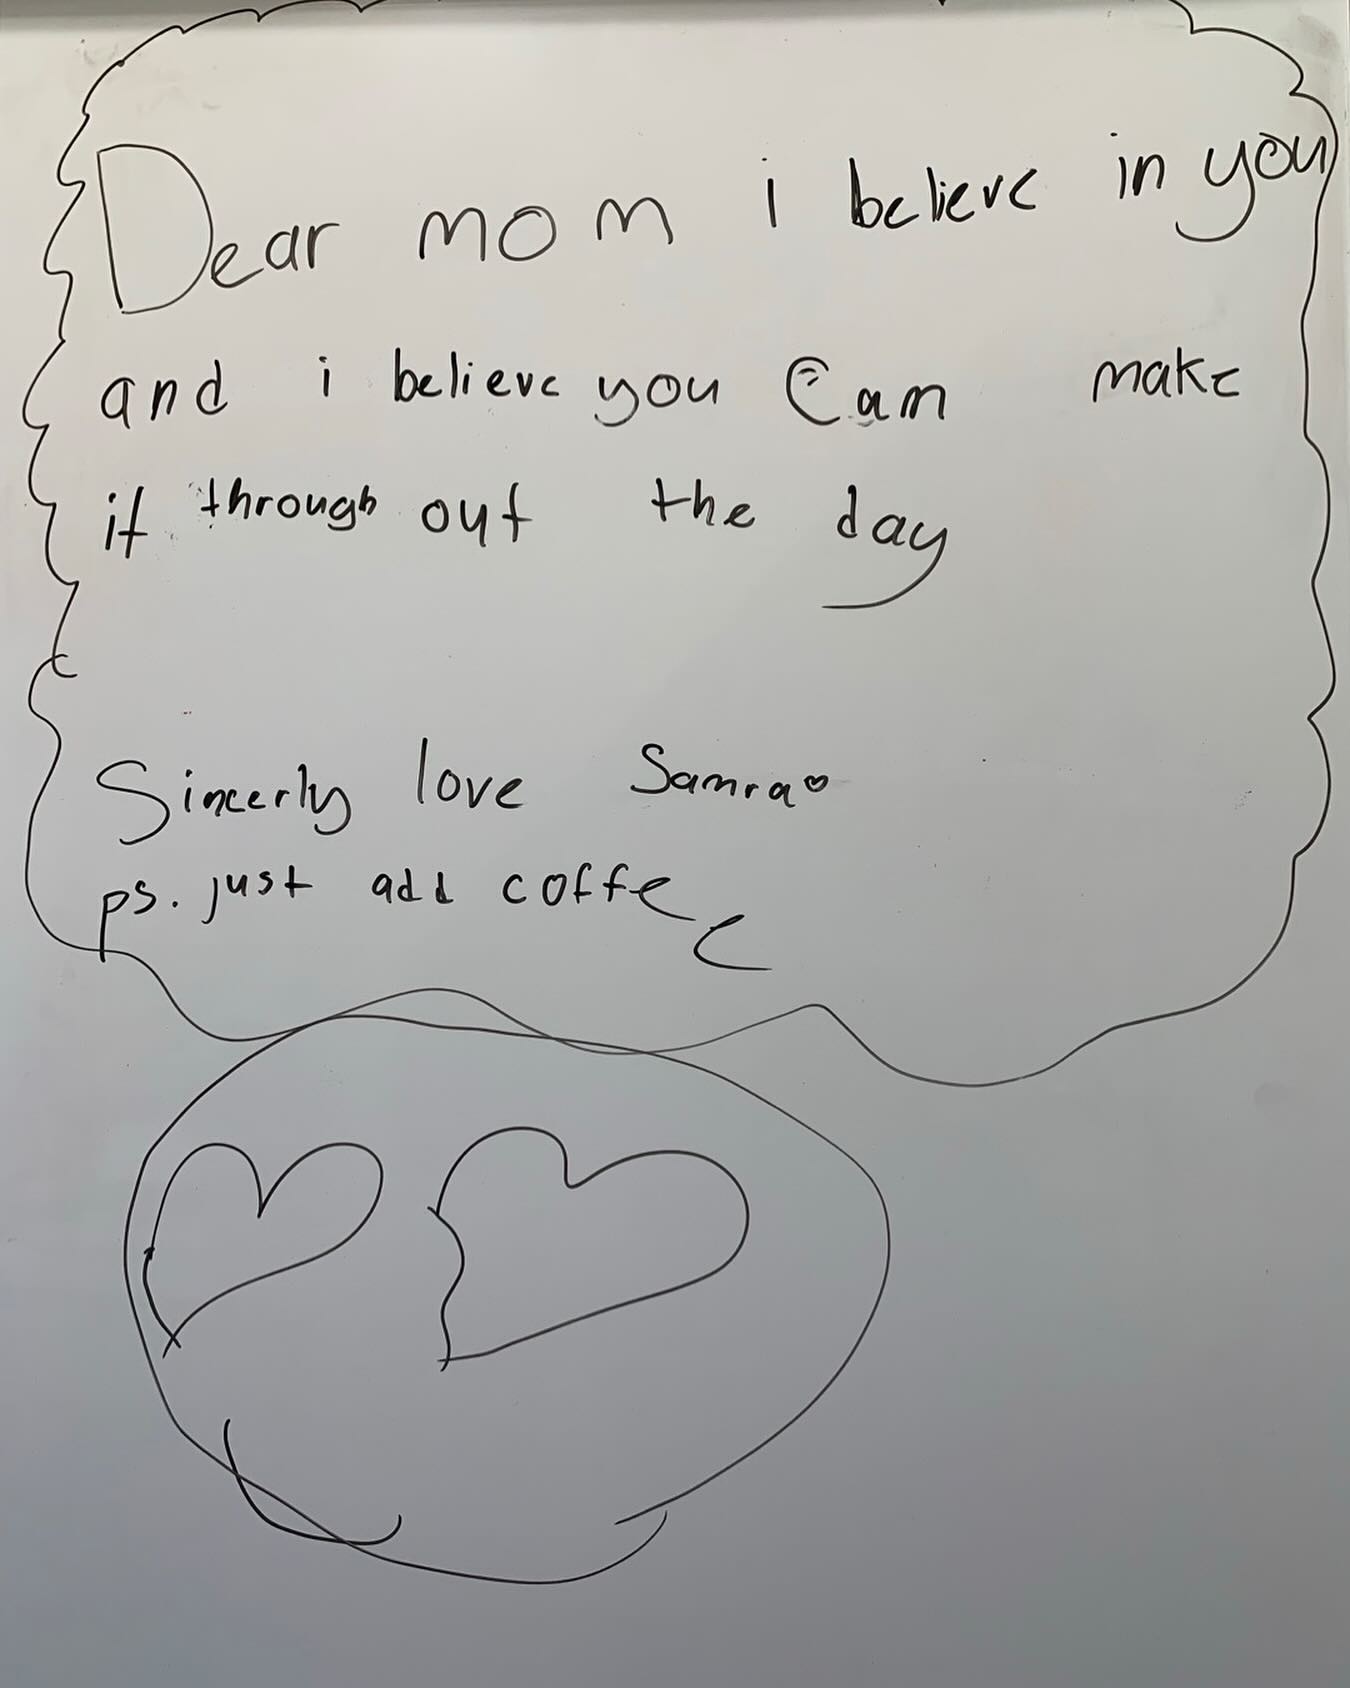 Dear mom i believe in you
and i believe you Can make
it through out the day
Sincerly love Samra♡
ps. just add coffee